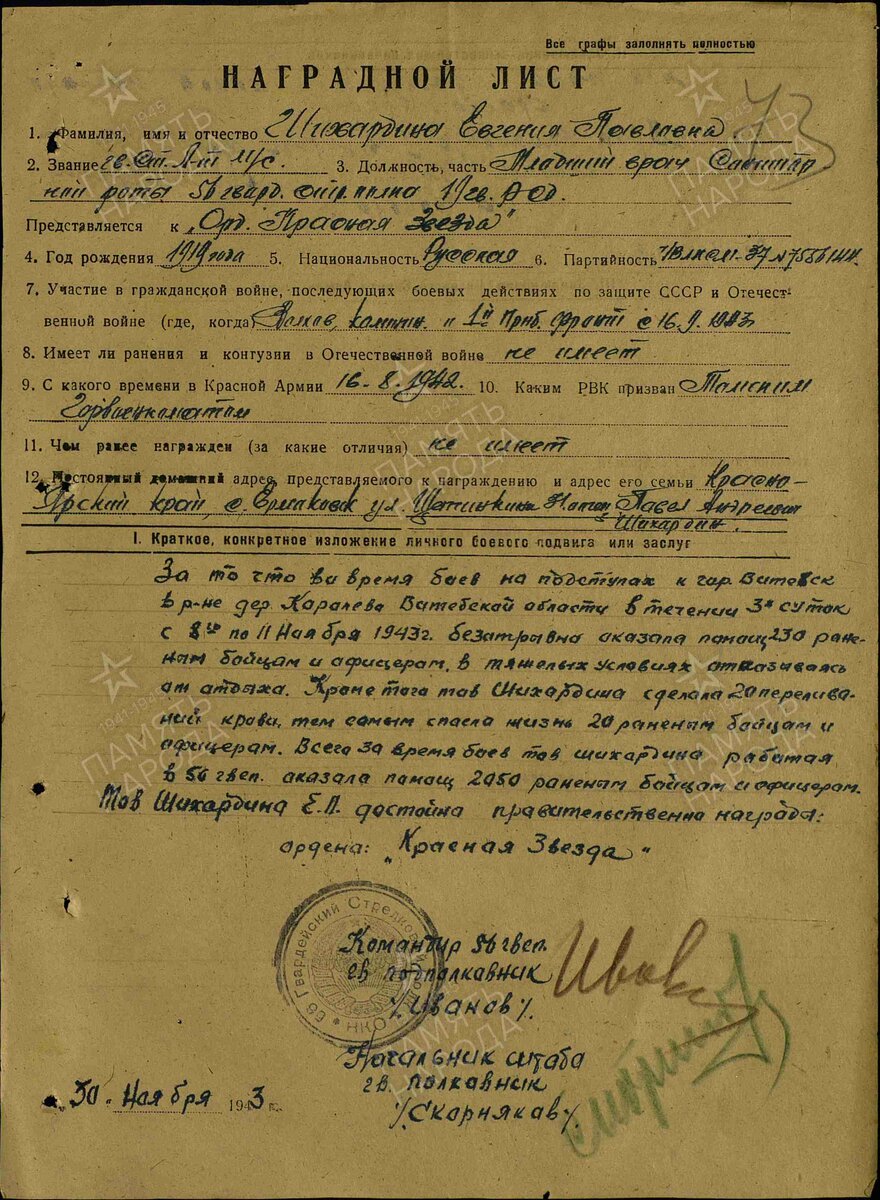 Все графы заполнять полностью
НАГРАДНОЙ ЛИСТ
73
1. Фамилия, имя и отчество Шихардина Евгения Павловна.
2. Звание гв. Ст. Л-т м/с. 3. Должность, часть Младший врач Санитар
ной роты 56 гвард. стр. полка 19 гв. КСД.
Представляется к „Орд. Красная Звезда"
4. Год рождения 1919 года 5. Национальность Русская 6. Партийность ЧВЛКСМ-37
7. Участие в гражданской войне, последующих боевых действиях по защите СССР и Отечест-
венной войне (где, когда) и 1й Приб. фронт с 16.9.1943
8. Имеет ли ранения и контузии в Отечественной войне не имеет
9. С какого времени в Красной Армии 16-8-1942. 10. Каким РВК призван Томским
Горвоенкоматом
11. Чем ранее награжден (за какие отличия) не имеет
12. Постоянный домашний адрес представляемого к награждению и адрес его семьи Красно-
Ярский край, с. Ермаковск ул. Щетинкина Павел Андреевич
Шихардин.
I. Краткое, конкретное изложение личного боевого подвига или заслуг
За то что во время боев на подступах к гор. Витебск
в р-не дер. Каралева Витебской области в течении 3х суток
с 8го по 11 Ноября 1943г. безатрывна аказала памащ 230 ране-
нам бойцам и афицерам, в тяжелых условиях атказываясь
ат атдыха. Кроме того тов Шихардина сделала 20 перелива-
ний крови, тем самым спасла жизнь 20 раненам бойцам и
афицерам. Всего за время боев тов Шихардина работая
в 56 гвсп. аказала памащ 2050 раненам бойцам и афицерам.
Тов Шихардина Е.П. достойна правительственно награды:
ордена: „Красная Звезда"
56 Гвардейский Стрелковый Полк
НКО
Командир 56 гвсп.
гв подполкавник
/Иванов/.
Начальник штаба
гв. полкавник
/Скорняков/.
30. Ноября 1943 г.
ПАМЯТЬ НАРОДА
1941-1945